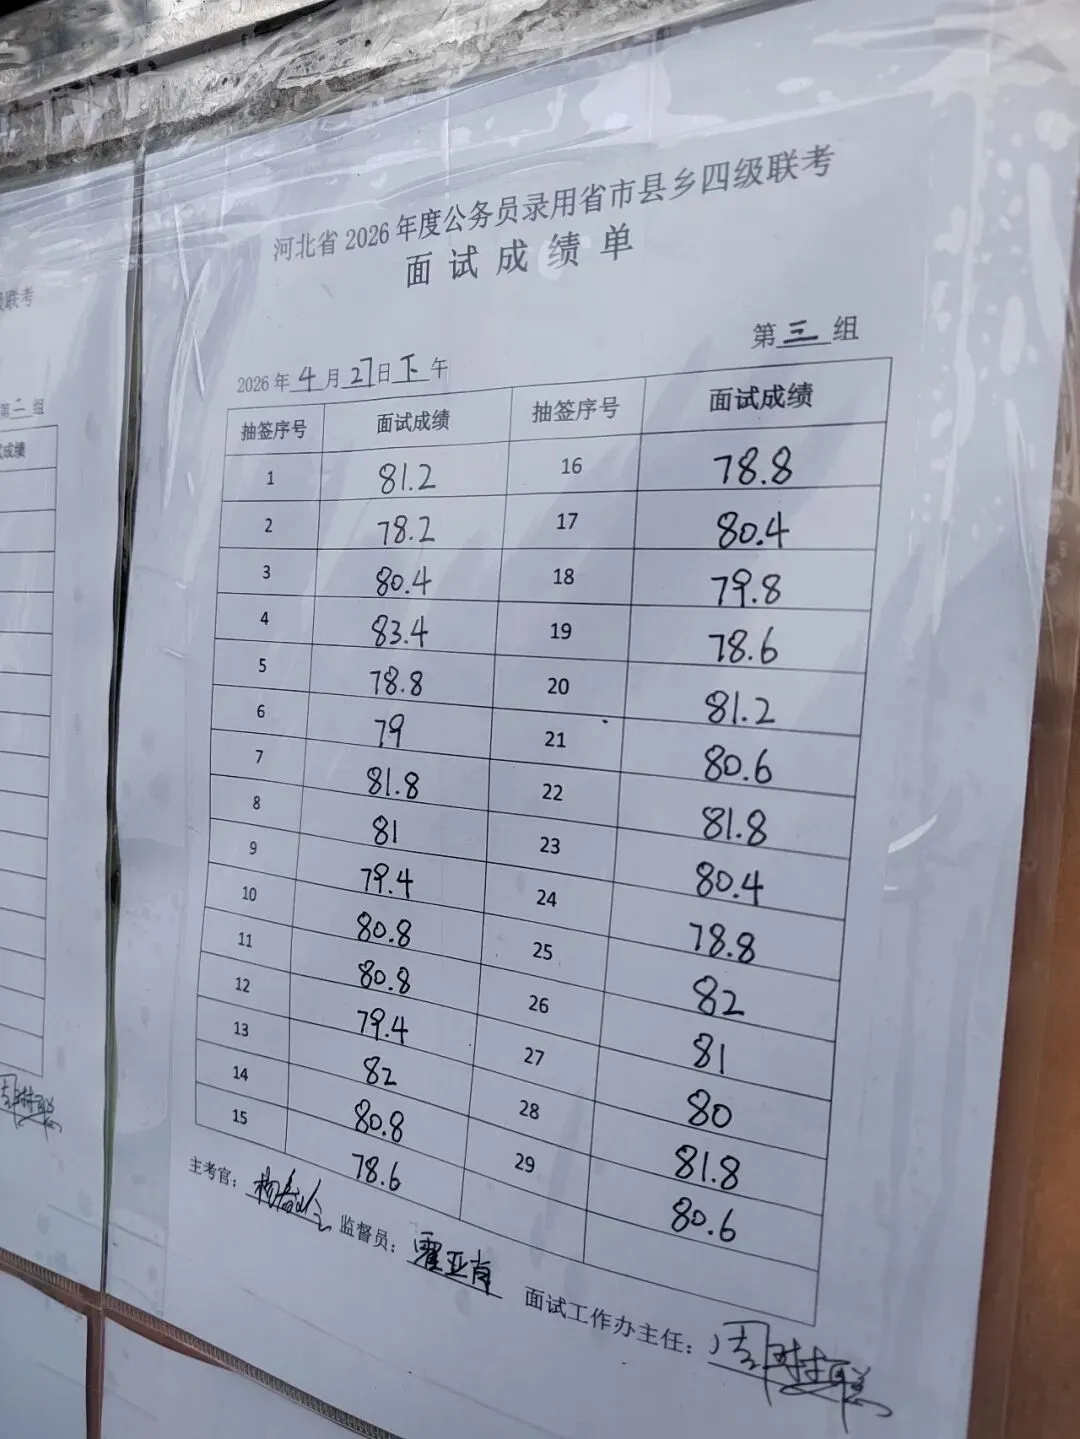 级联考
第二组
试成绩
河北省2026年度公务员录用省市县乡四级联考
面试成绩单
第三组
2026年4月27日下午
抽签序号 面试成绩 抽签序号 面试成绩
1 81.2 16 78.8
2 78.2 17 80.4
3 80.4 18 79.8
4 83.4 19 78.6
5 78.8 20 81.2
6 79 21 80.6
7 81.8 22 81.8
8 81 23 80.4
9 79.4 24 78.8
10 80.8 25 82
11 80.8 26 81
12 79.4 27 80
13 82 28 81.8
14 80.8 29 80.6
15 78.6
主考官： 监督员：霍亚肖 面试工作办主任：